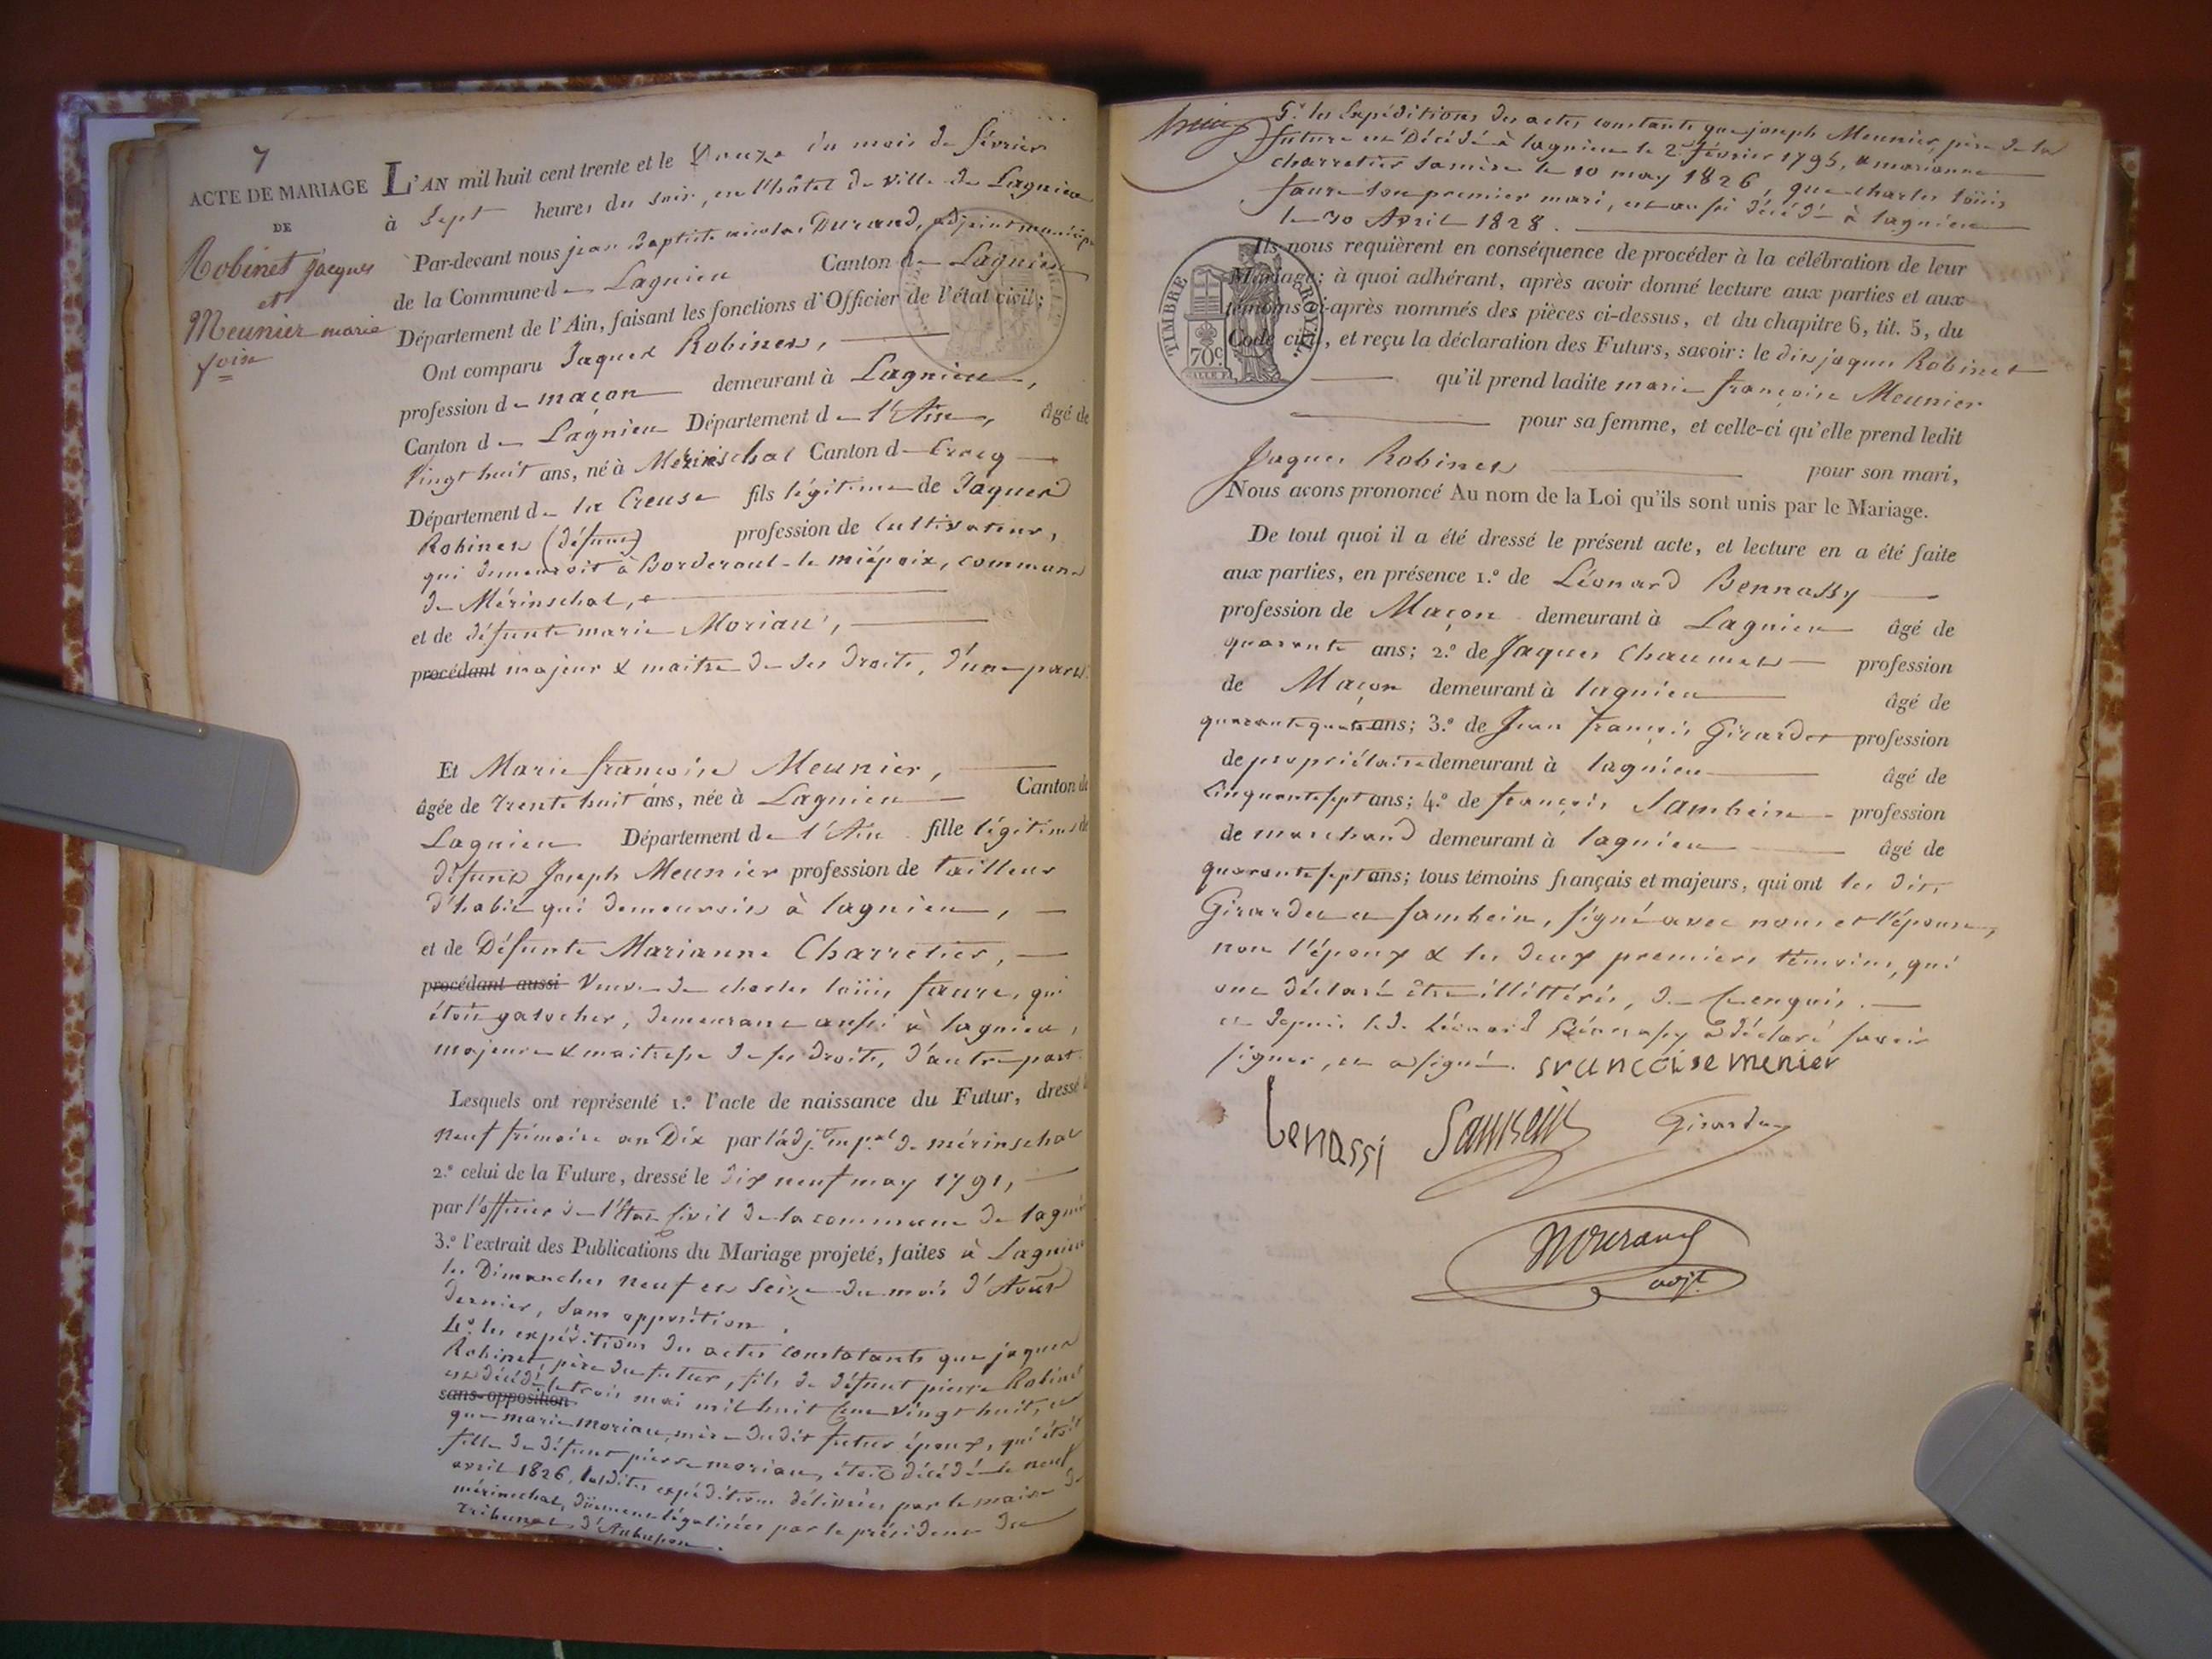 7
ACTE DE MARIAGE
DE
Robinet Jacques
et
Meunier marie
L'AN mil huit cent trente et le Douze du mois de février
à Sept heures du soir, en l'hôtel de ville de Lagnieu
Par-devant nous jean Baptiste nicolas Durand, adjoint municip
de la Commune de Lagnieu Canton de Lagnieu
Département de l'Ain, faisant les fonctions d'Officier de l'état civil;
Ont comparu Jaques Robinet,
profession de maçon demeurant à Lagnieu,
Canton de Lagnieu Département de l'Ain, âgé de
Vingt huit ans, né à Mérinschal Canton de Crocq
Département de la Creuse fils légitime de Jaques
Robinet (défunt) profession de Cultivateur,
qui demeuroit à commune
de Mérinschal,
et de défunte marie Moriau,
procédant majeur & maitre de ses Droits, d'une part.
Et Marie françoise Meunier,
âgée de Trente huit ans, née à Lagnieu Canton de
Lagnieu Département de l'Ain fille légitime de
défunt Joseph Meunier profession de tailleur
d'habit qui demeuroit à lagnieu,
et de Défunte Marianne Charretier,
procédant aussi Veuve de charles loüis faure, qui
étoit demeurant aussi à lagnieu,
majeure & maitresse de ses Droits, d'autre part.
Lesquels ont représenté 1.º l'acte de naissance du Futur, dressé
neuf frimaire an Dix par l'adj. mpal de mérinschal
2.º celui de la Future, dressé le dix neuf may 1791,
par l'officier de l'état Civil de la commune de lagnieu
3.º l'extrait des Publications du Mariage projeté, faites à Lagnieu
les Dimanches neuf et Seize du mois d'Août
dernier, sans opposition.
4.º les expéditions des actes constatants que jaques
Robinet, père du futur, fils de défunt pierre Robinet
est décédé le trois mai mil huit Cent vingt huit, et
sans opposition
que marie moriau, mère dudit futur époux, qui étoit
fille de défunt pierre moriau, étoit décédée le neuf
avril 1826, lesdites expéditions délivrées par le maire de
mérinschal, dûement légalisées par le président du
tribunal d'Aubusson.
5.º les Expéditions des actes constants que joseph Meunier, père de la
future est Décédé à lagnieu le 2 février 1795, & marianne
charretier sa mère le 10 may 1826, que charles loüis
faure son premier mari, est aussi décédé à lagnieu
le 30 Avril 1828.
TIMBRE ROYAL
70c
Ils nous requièrent en conséquence de procéder à la célébration de leur
Mariage; à quoi adhérant, après avoir donné lecture aux parties et aux
témoins ci-après nommés des pièces ci-dessus, et du chapitre 6, tit. 5, du
Code civil, et reçu la déclaration des Futurs, savoir: le dit jaques Robinet
qu'il prend ladite marie françoise Meunier
pour sa femme, et celle-ci qu'elle prend ledit
Jaques Robinet pour son mari,
Nous avons prononcé Au nom de la Loi qu'ils sont unis par le Mariage.
De tout quoi il a été dressé le présent acte, et lecture en a été faite
aux parties, en présence 1.º de Léonard Bennassy
profession de Maçon demeurant à Lagnieu âgé de
quarante ans; 2.º de Jaques Chaumet profession
de Maçon demeurant à lagnieu âgé de
quarante quatre ans; 3.º de Jean françois Girardet profession
de propriétaire demeurant à lagnieu âgé de
Cinquante sept ans; 4.º de françois Sambein profession
de marchand demeurant à lagnieu âgé de
quarante sept ans; tous témoins français et majeurs, qui ont les dits
Girardet et Sambein, signé avec nous et l'épouse,
non l'époux & les deux premiers témoins, qui
ont déclaré être illittérés, de ce enquis.
et depuis ledt Léonard Bennassy a déclaré savoir
signer, et a signé. srancoise menier
benassi Sambein Girardet
NDurand
adjt